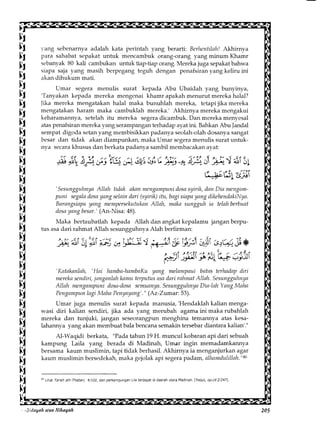 yang sebenarnya adalah kata perintah yang berarti: Berhentilah! Akhirnya
para sahabat sepakat untuk mencambuk orang-orang yang minum Khamr
sebanyak 80 kali cambukan untuk tiap-tiap orang. Mereka juga sepakat bahwa
siapa saja yang masih berpegang teguh dengan penafsiran yang keliru ini
akan dihukum mati.
Umar segera menulis surat kepada Abu Ubaidah yang bunyinya,
'Tanyakan kepada mereka mengenai khamr apakah menurut mereka halal?
Jika mereka mengatakan halal maka bunuhlah mereka, tetapi jika mereka
mengatakan haram maka cambuklah mereka.' Akhirnya mereka mengakui
keharamannya, setelah itu mereka segera dicambuk. Dan mereka menyesal
atas penafsiran mereka yang serampangan terhadap ayat ini. Bahkan Abu Jandal
sempat digoda setan yang membisikkan padanya seolah-olah dosanya sangat
besar dan tidak akan diampunkan, maka Umar segera menulis surat untuk-
nya secara khusus dan berkata padanya sambil membacakan ayat:
'Sesungguhnya Allah tidak akan mengampuni dosa syirik, dan Dia mengam-
puni segala dosa yang selain dari (syirik) itu, bagi siapa yang dikehendakiNya.
Barangsiapa yang mempersekutukan Allah, maka sungguh ia telah berbuat
dosa yang besar.' (An-Nisa: 48).
Maka bertaubatlah kepada Allah dan angkat kepalamu jangan berpu-
tus asa dari rahmat Allah sesungguhnya Alah berfirman:
'Katakanlah, 'Hai hamba-hambaKu yang melampaui batas terhadap diri
mereka sendiri, janganlah kamu terputus asa dari rahmat Allah. Sesungguhnya
Allah mengampuni dosa-dosa semuanya. Sesungguhnya Dia-lah Yang Maha
Pengampun lagi Maha Penyayang'.' (Az-Zumar: 53).
Umar juga menulis surat kepada manusia, 'Hendaklah kalian menga-
wasi diri kalian sendiri, jika ada yang merubah agama ini maka rubahlah
mereka dan tunjuki, jangan seseorangpun menghina temannya atas kesa-
lahannya yang akan membuat bala bencana semakin tersebar diantara kalian'."
Al-Waqidi berkata, "Pada tahun 19 H. muncul kobaran api dari sebuah
kampung Laila yang berada di Madinah, Umar ingin memadamkannya
bersama kaum muslimin, tapi tidak berhasil. Akhirnya ia menganjurkan agar
kaum muslimin bersedekah, maka gejolak api segera padam, alhamdulillah."
205